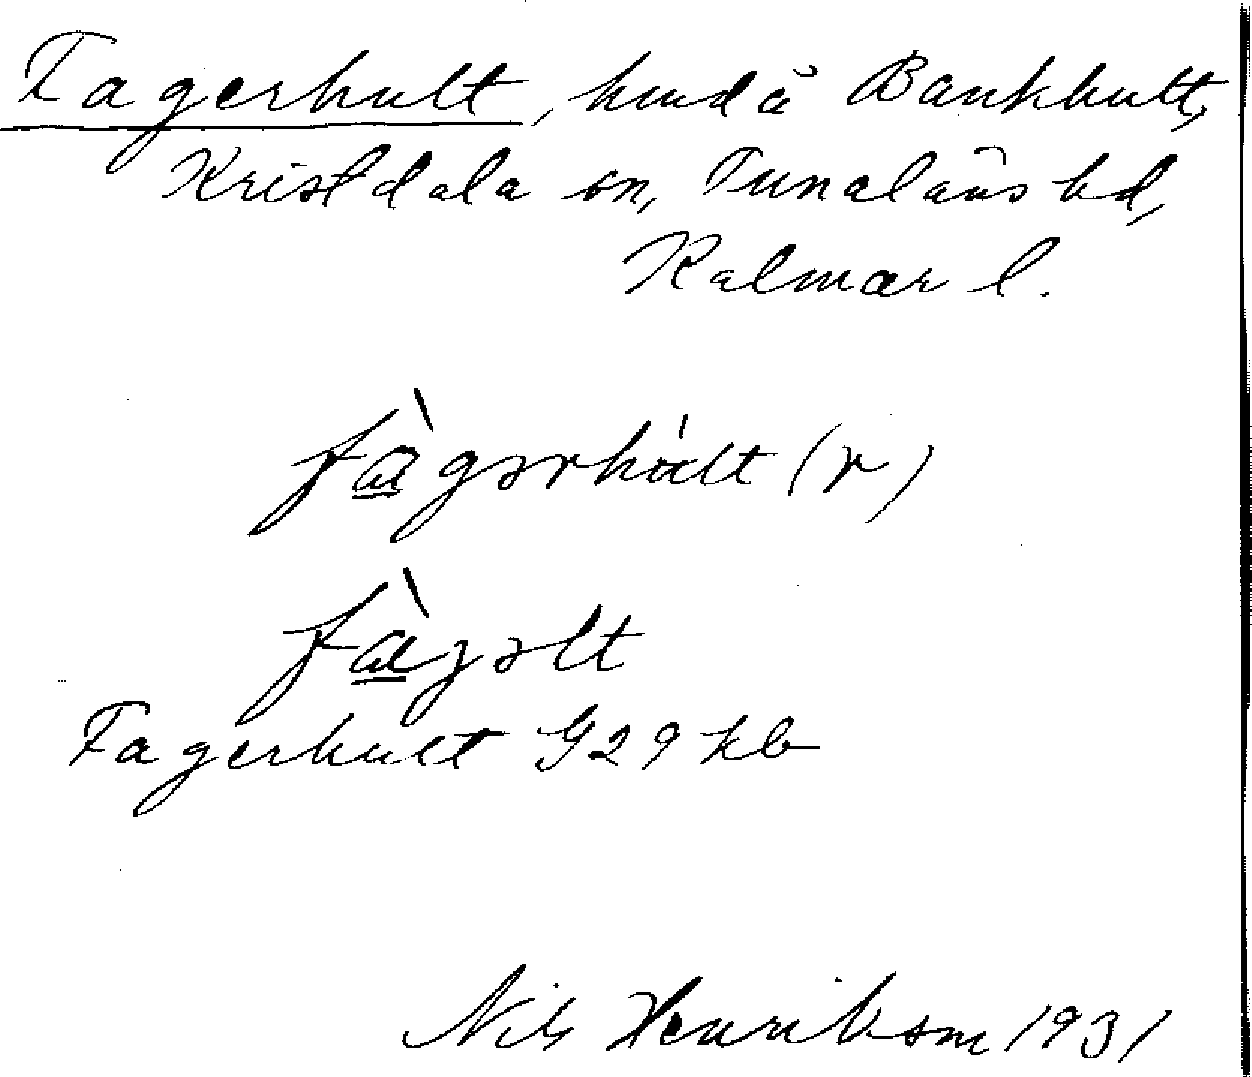 Fagerhult, hmd å Bankhult,
Kristdala sn, Tunaläns hd,
Kalmar l.
fàgərhult (r)
fàgəlt
Fagerhult G29 kb
Nils Henriksson 1931